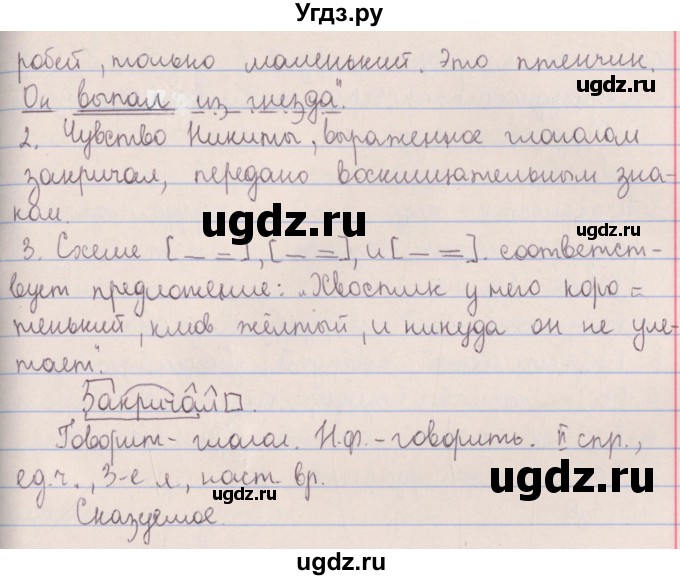 Угдз.ру
робей, только маленький. Это птенчик.
Он выпал из гнезда".
2. Чувство Никиты, выраженное глаголом
закричал, передано восклицательным зна-
ком.
3. Схеме [_ =], [_ =], и [_ =]. соответст-
вует предложение: „Хвостик у него коро=
тенький, клюв жёлтый, и никуда он не уле-
тает".
Закричал□.
Говорит - глагол. Н.ф. - говорить. II спр.,
ед.ч., 3-е л, наст. вр.
Сказуемое.
ugdz.ru
ugdz.ru
ugdz.ru
ugdz.ru
ugdz.ru
ugdz.ru
ugdz.ru
ugdz.ru